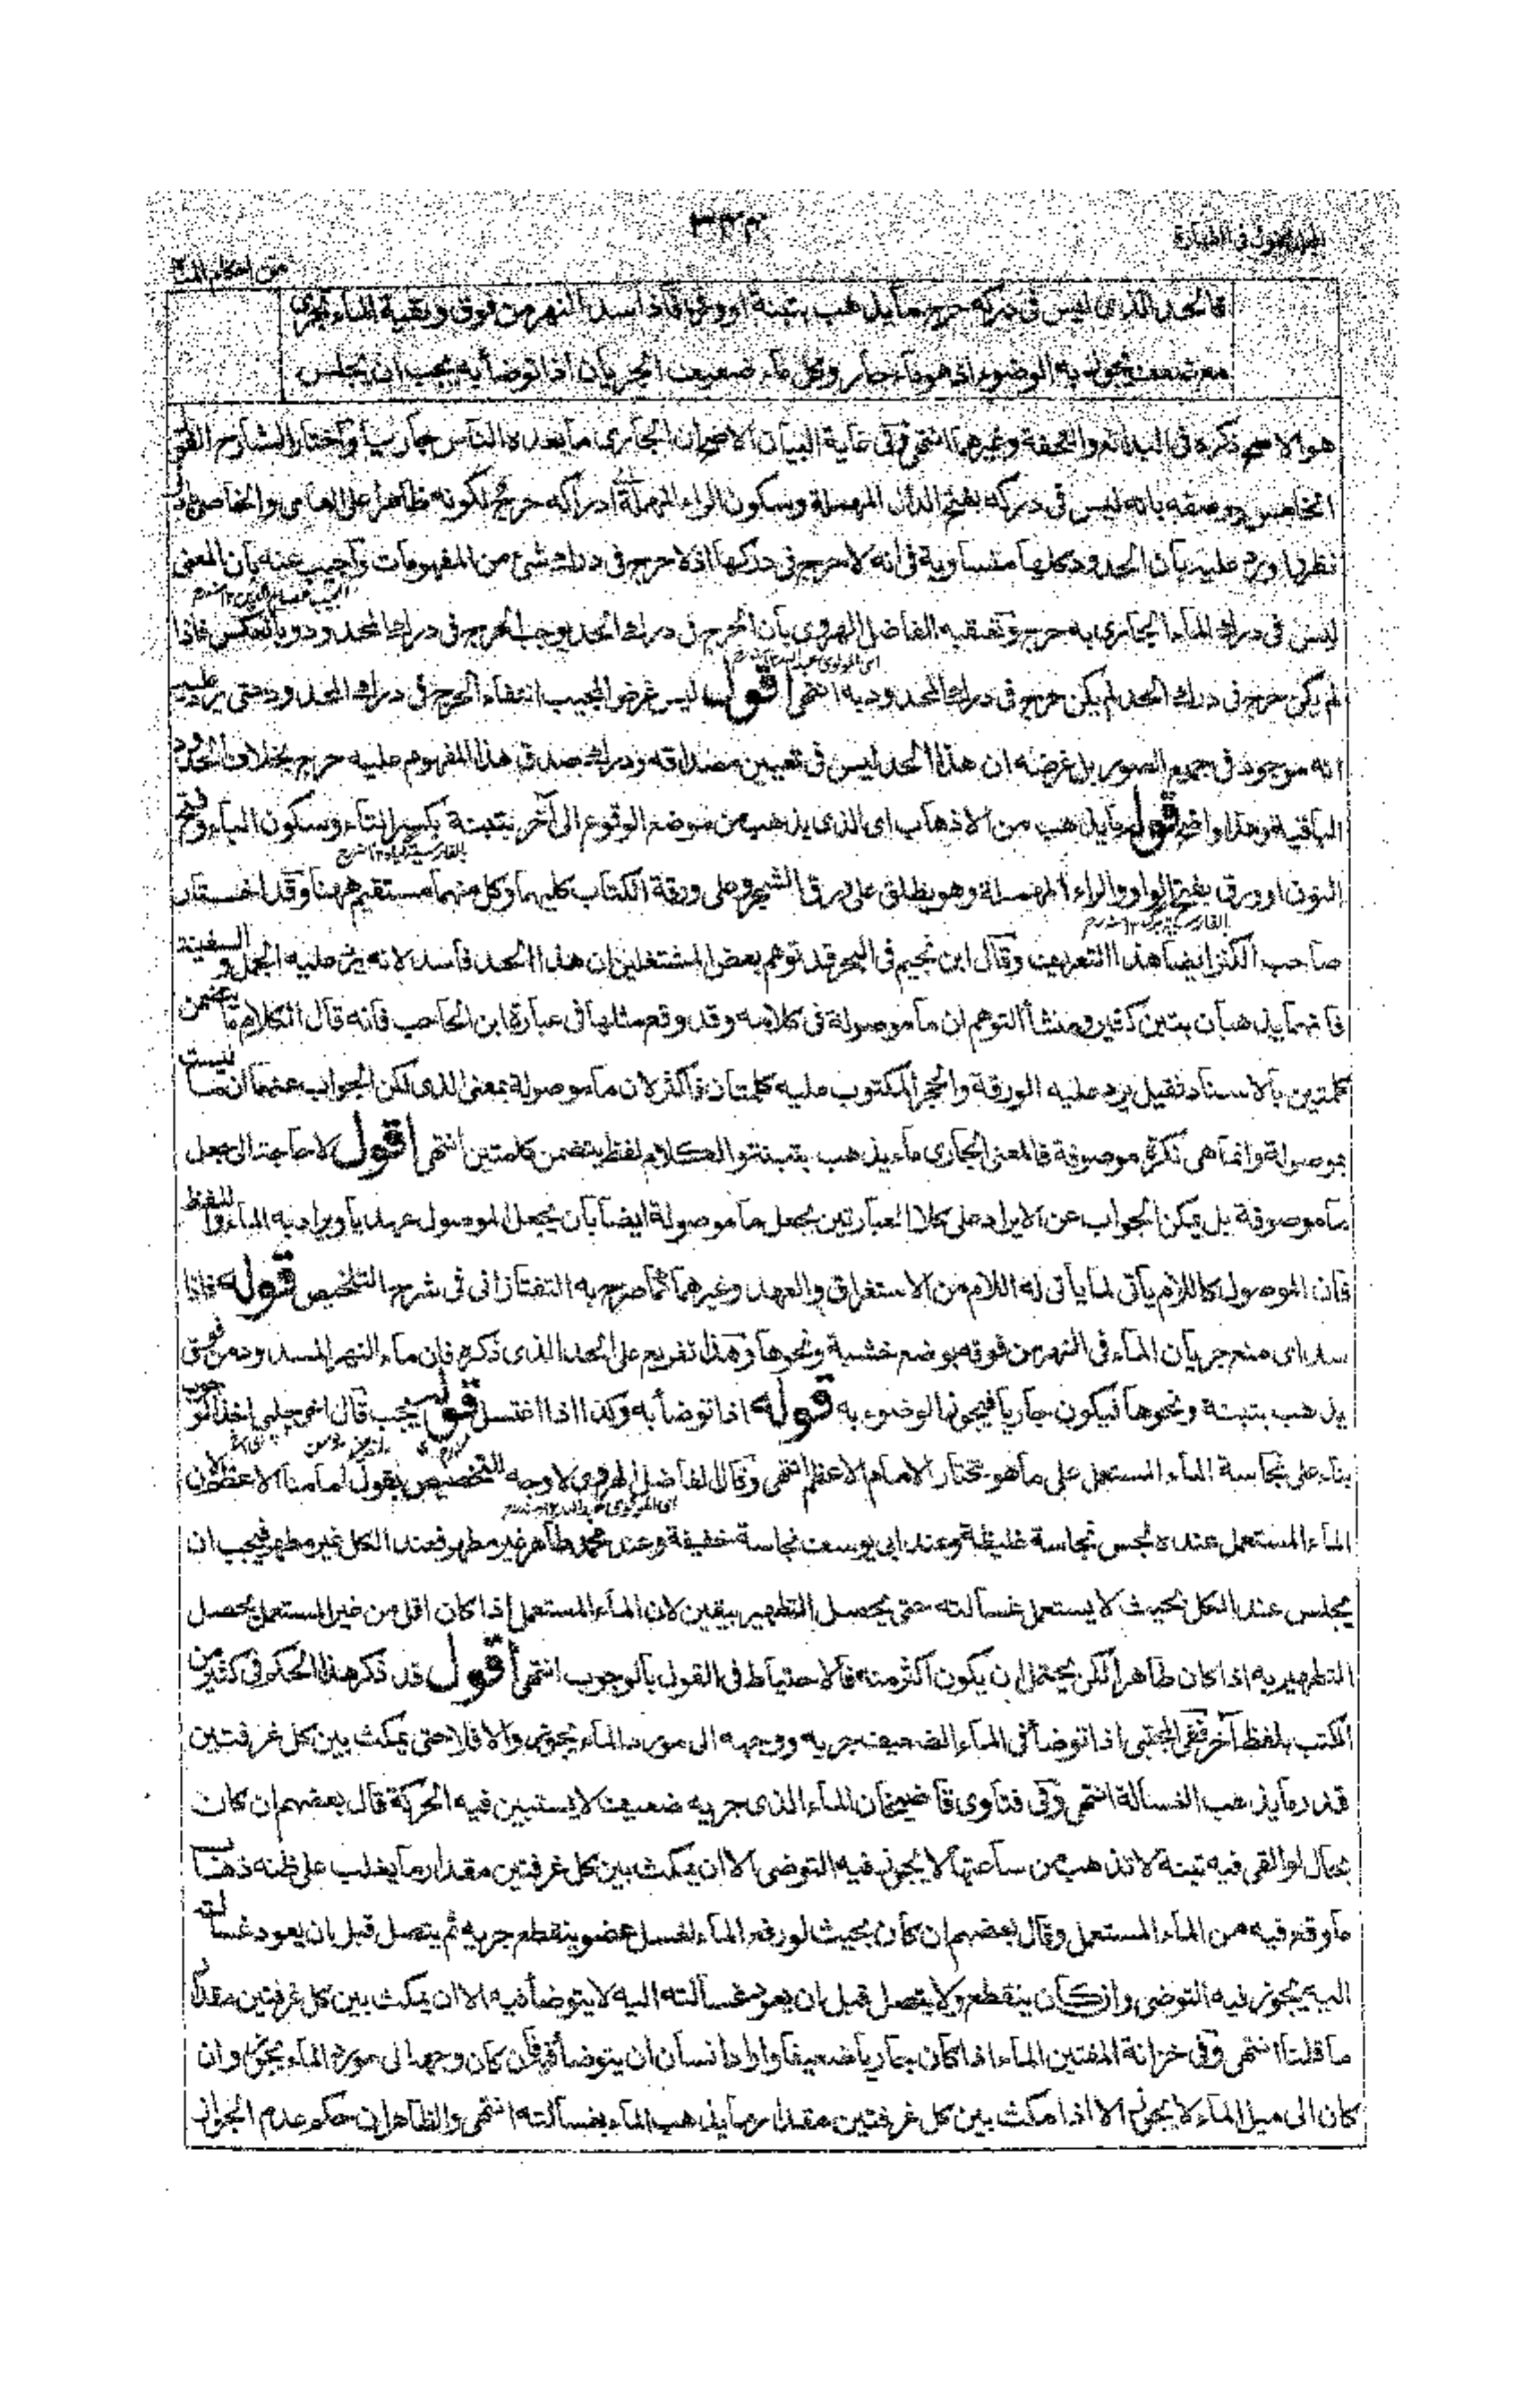 ٣٣٣
فالحد الذي ليس في دركه حرج ما يذهب بتبنة او ورق فاذا سد النهر من فوق وبقية الماء تجري
مع ضعف يجوز به الوضوء اذ هو ماء جار وكل ماء ضعيف الجريان اذا توضأ به يجب ان يجلس
هو الاصح ذكره في البدائع والتحفة وغيرهما انتهى وفي غاية البيان الاصح ان الجاري ما يعده الناس جاريا واختار الشارح القول
الخامس ووصفه بانه ليس في دركه بفتح الدال المهملة وسكون الراء المهملة ادراكه حرج لكونه ظاهرا على العامي والخاصي
نظرا اورد عليه بان الحدود كلها متساوية في انه لا حرج في دركها اذ لا حرج في دراك شئ من المفهومات واجيب عنه بان المعنى
ليس في دراك الماء الجاري به حرج وتعقبه الفاضل الهروي بان الحرج في دراك الحد يوجب الحرج في دراك المحدود وبالعكس فاذا
لم يكن حرج في دراك الحد لم يكن حرج في دراك المحدود به انتهى اقول ليس غرض المجيب انتفاء الحرج في دراك المحدود حتى يرد عليه
انه موجود في جميع الصور بل غرضه ان هذا الحد ليس في تعيين مصداقه ودراك صدق هذا المفهوم عليه حرج بخلاف الحدود
الباقية وهذا واضح قوله ما يذهب من الاذهاب اي الذي يذهب من موضع الوقوع الى آخر بتبنة بكسر التاء وسكون الباء وفتح
النون او ورق بفتح الواو والراء المهملة وهو يطلق على ورق الشجر وعلى ورقة الكتاب كليهما وكل منهما مستقيم ههنا وقد اختار
صاحب الكنز ايضا هذا التعريف وقال ابن نجيم في البحر قد توهم بعض المشتغلين ان هذا الحد فاسد لانه يرد عليه الجمل والسفينة
فانهما يذهبان بتبن كثير ومنشأ التوهم ان ما موصولة في كلامه وقد وقع مثلها في عبارة ابن الحاجب فانه قال الكلام ما يتضمن
كلمتين بالاسناد فقيل يرد عليه الورقة والحجر المكتوب عليه كلمتان فاكثر لان ما موصولة بمعنى الذي لكن الجواب عنهما ان ما ليست
موصولة وانما هي نكرة موصوفة فالمعنى الجاري ماء يذهب بتبنة والكلام لفظ يتضمن كلمتين انتهى اقول لا حاجة الى جعل
ما موصوفة بل يمكن الجواب عن الايراد على كلا العبارتين بجعل ما موصولة ايضا بان يجعل الموصول عهديا ويراد به الماء واللفظ
فان الموصول كاللام يأتي لما يأتي له اللام من الاستغراق والعهد وغيرهما كما صرح به التفتازاني في شرح التلخيص قوله فاذا
سد اي منع جريان الماء في النهر من فوقه بوضع خشبة ونحوها وهذا تفريع على الحد الذي ذكره فان ماء النهر المسدود من فوق
يذهب بتبنة ونحوها فيكون جاريا فيجوز الوضوء به قوله اذا توضأ به وكذا اذا اغتسل قوله يجب قال اخي چلپي اخذ الوجوب
بناء على نجاسة الماء المستعمل على ما هو مختار الامام الاعظم انتهى وقال الفاضل الهروي لا وجه للتخصيص بقول امامنا الاعظم لان
الماء المستعمل عنده نجس نجاسة غليظة وعند ابي يوسف نجاسة خفيفة وعند محمد طاهر غير مطهر فعند الكل غير مطهر فيجب ان
يجلس عند الكل بحيث لا يستعمل غسالته حتى يحصل التطهير بيقين لان الماء المستعمل اذا كان اقل من غير المستعمل يحصل
التطهير به اذا كان طاهرا لكن يحتمل ان يكون اكثر منه فالاحتياط في القول بالوجوب انتهى اقول قد ذكر هذا الحكم في كثير من
الكتب بلفظ آخر ففي المجتبى اذا توضأ في الماء الضعيف جريه ووجهه الى مورد الماء يجوز والا فلا حتى يمكث بين كل غرفتين
قدر ما يذهب الغسالة انتهى وفي فتاوى قاضيخان الماء الذي جريه ضعيف لا يستبين فيه الحركة قال بعضهم ان كان
بحال لو القي فيه تبنة لا تذهب من ساعتها لا يجوز فيه التوضي الا ان يمكث بين كل غرفتين مقدار ما يغلب على ظنه ذهاب
ما وقع فيه من الماء المستعمل وقال بعضهم ان كان بحيث لو رفع الماء لغسل عضو ينقطع جريه ثم يتصل قبل ان يعود غسالته
اليه يجوز فيه التوضي وان كان ينقطع ولا يتصل قبل ان يعود غسالته اليه لا يتوضأ فيه الا ان يمكث بين كل غرفتين مقدار
ما قلنا انتهى وفي خزانة المفتين الماء اذا كان جاريا ضعيفا واراد انسان ان يتوضأ فيه فان كان وجهه الى مورد الماء يجوز وان
كان الى مسيل الماء لا يجوز الا اذا مكث بين كل غرفتين مقدار ما يذهب الماء بغسالته انتهى والظاهر ان حكم عدم الجواز